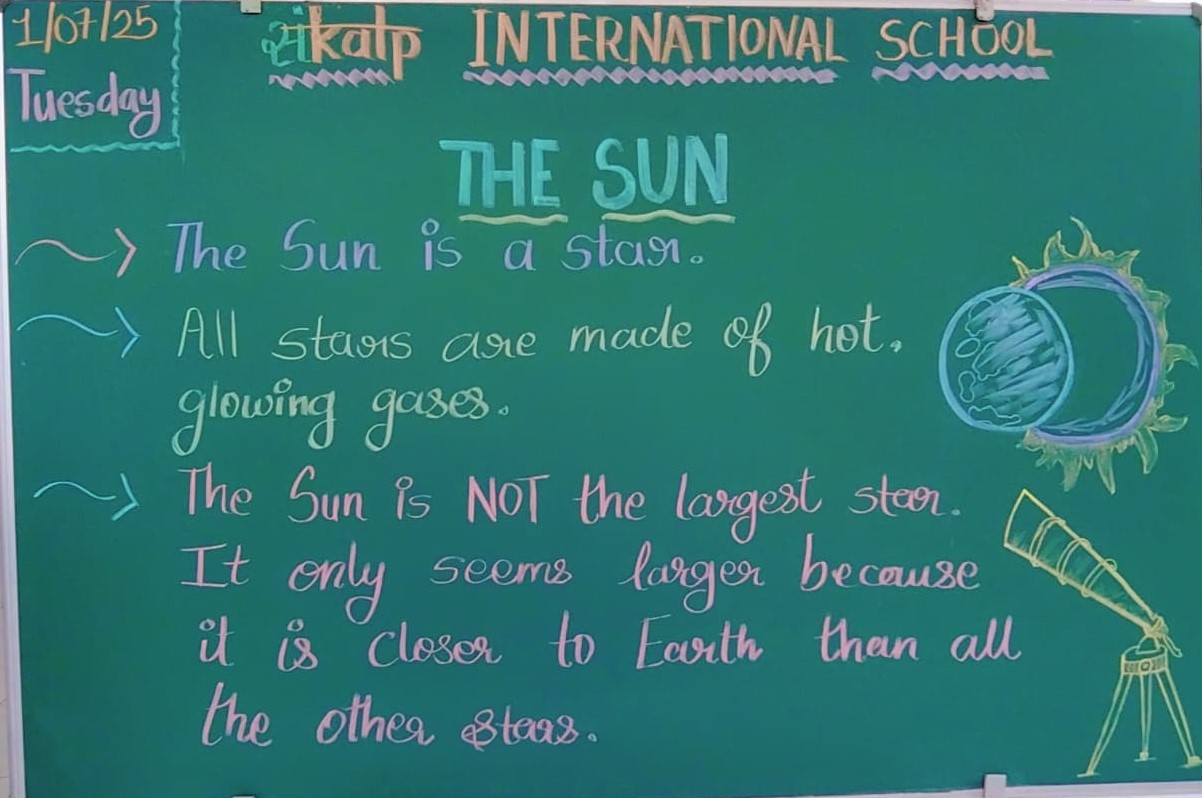 1/07/25
Tuesday
संkalp INTERNATIONAL SCHOOL
THE SUN
The Sun is a star.
All stars are made of hot,
glowing gases.
The Sun is NOT the largest star.
It only seems larger because
it is closer to Earth than all
the other stars.